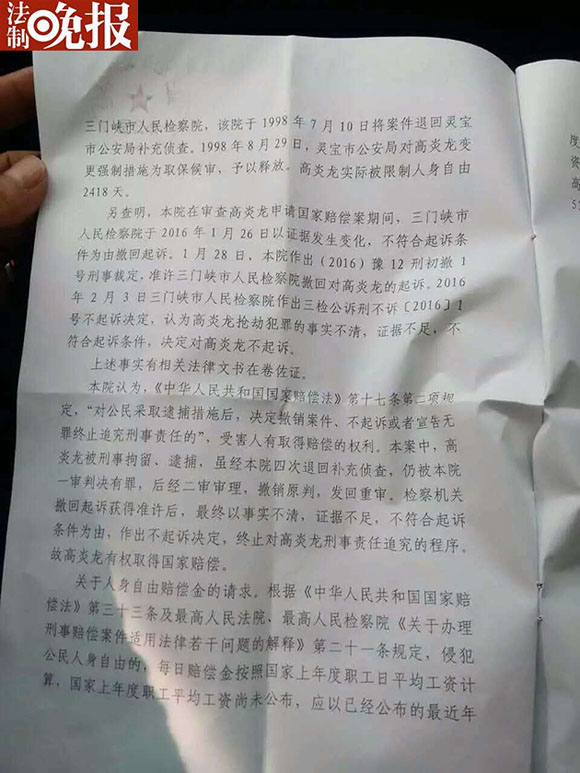 法制晚报
三门峡市人民检察院，该院于1998年7月10日将案件退回灵宝
市公安局补充侦查。1998年8月29日，灵宝市公安局对高炎龙变
更强制措施为取保候审，予以释放。高炎龙实际被限制人身自由
2418天。
另查明，本院在审查高炎龙申请国家赔偿案期间，三门峡市
人民检察院于2016年1月26日以证据发生变化，不符合起诉条
件为由撤回起诉。1月28日，本院作出（2016）豫12刑初撤1
号刑事裁定，准许三门峡市人民检察院撤回对高炎龙的起诉。2016
年2月3日三门峡市人民检察院作出三检公诉刑不诉〔2016〕1
号不起诉决定，认为高炎龙抢劫犯罪的事实不清，证据不足，不
符合起诉条件，决定对高炎龙不起诉。
上述事实有相关法律文书在卷佐证。
本院认为，《中华人民共和国国家赔偿法》第十七条第二项规
定，“对公民采取逮捕措施后，决定撤销案件、不起诉或者宣告无
罪终止追究刑事责任的”，受害人有取得赔偿的权利。本案中，高
炎龙被刑事拘留、逮捕，虽经本院四次退回补充侦查，仍被本院
一审判决有罪，后经二审审理，撤销原判，发回重审。检察机关
撤回起诉获得准许后，最终以事实不清，证据不足，不符合起诉
条件为由，作出不起诉决定，终止对高炎龙刑事责任追究的程序。
故高炎龙有权取得国家赔偿。
关于人身自由赔偿金的请求。根据《中华人民共和国国家赔
偿法》第三十三条及最高人民法院、最高人民检察院《关于办理
刑事赔偿案件适用法律若干问题的解释》第二十一条规定，侵犯
公民人身自由的，每日赔偿金按照国家上年度职工日平均工资计
算，国家上年度职工平均工资尚未公布，应以已经公布的最近年
度
资
高
5